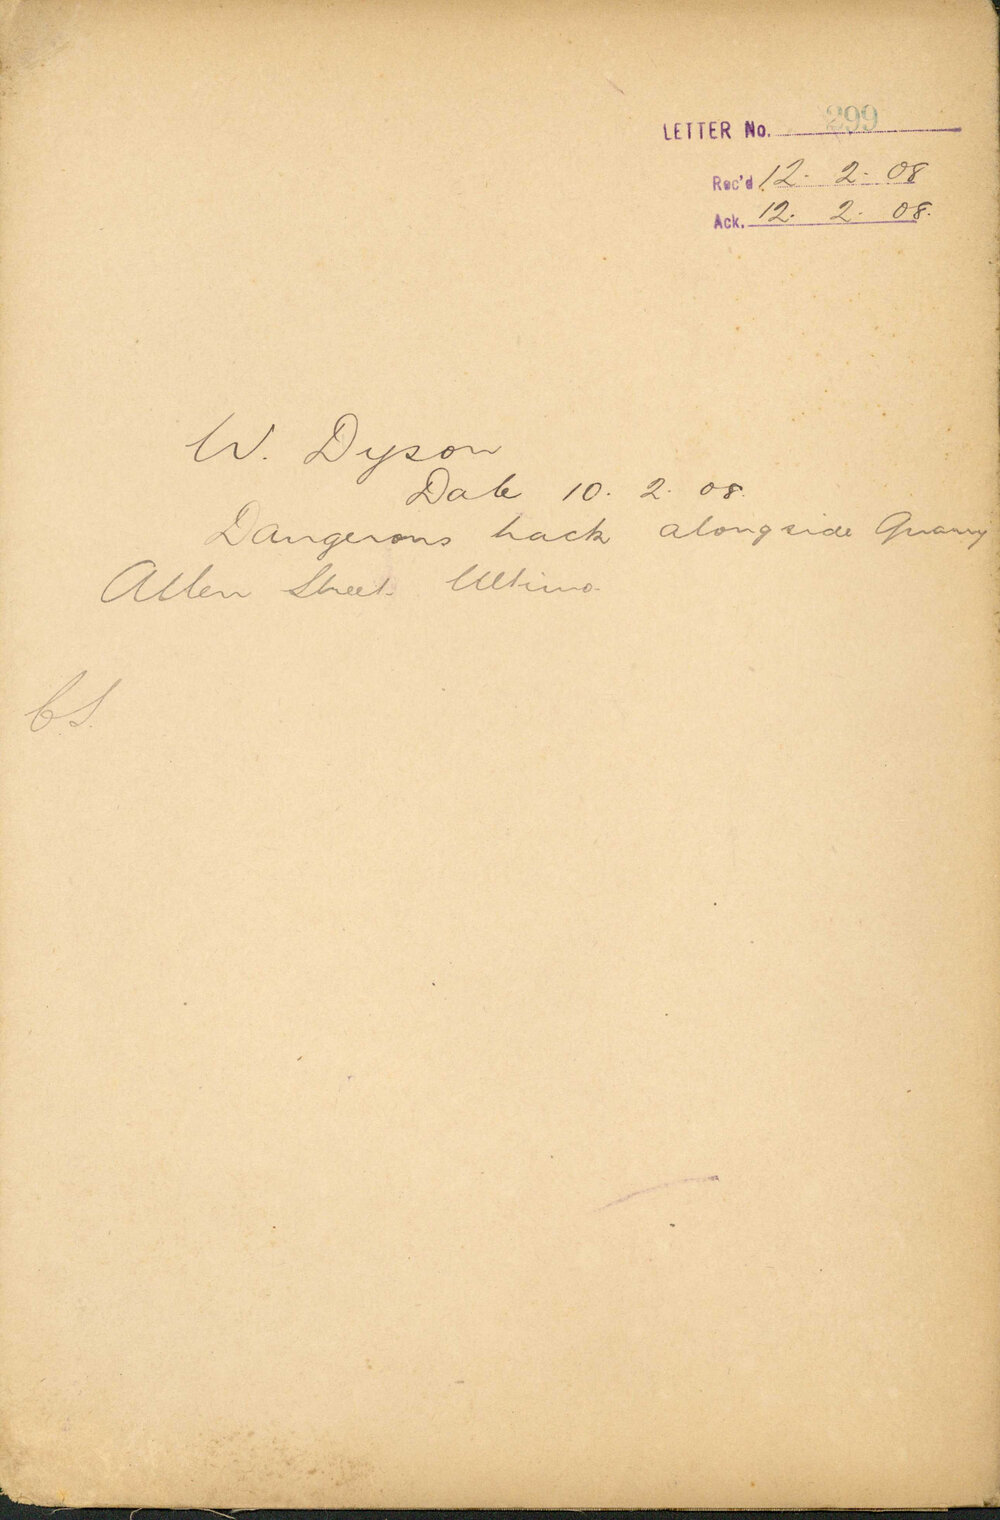 LETTER No. 299
Rec'd 12. 2. 08
Ack. 12. 2. 08.
W. Dyson
Date 10. 2. 08.
Dangerous track alongside Quarry
Allen Street. Ultimo.
C.S.